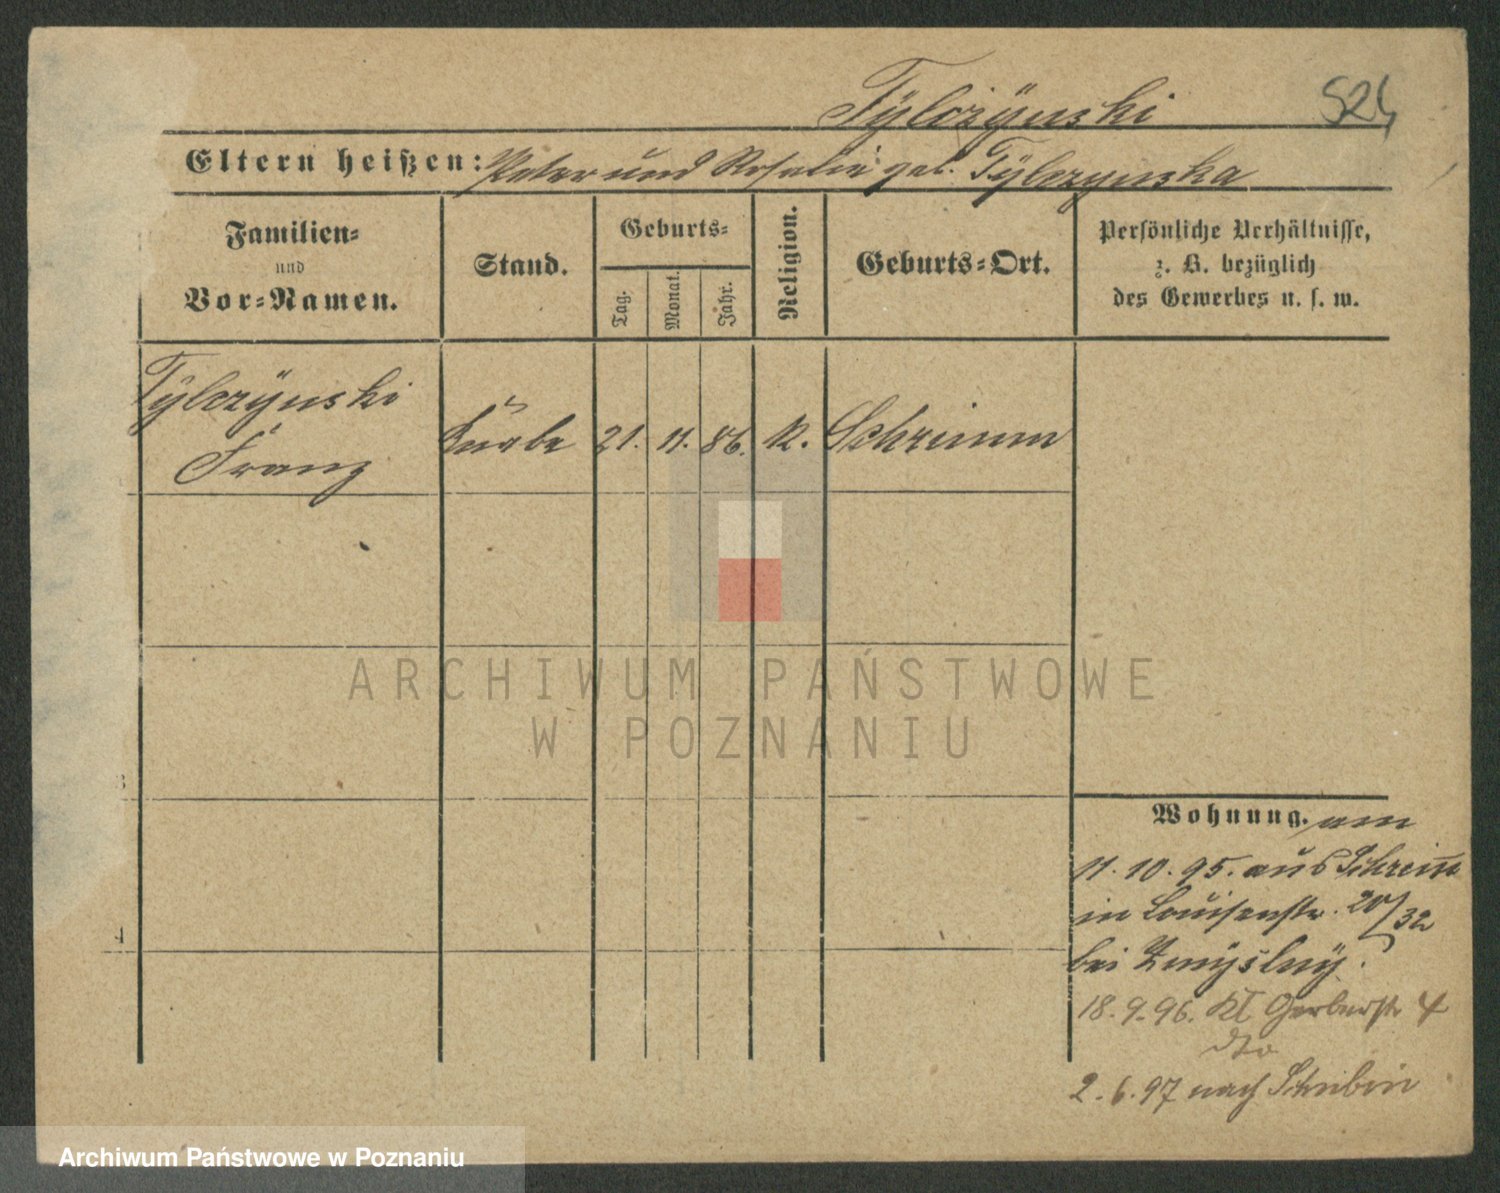 Tylczÿnski 524
Eltern heißen: Peter und Rosalie geb. Tÿlczynska
Familien-
und
Vor-Namen.
Stand.
Geburts-
Tag.
Monat.
Jahr.
Religion.
Geburts-Ort.
Persönliche Verhältnisse,
z. B. bezüglich
des Gewerbes u. s. w.
Tÿlczÿnski
Franz
Knabe 21. 11. 86. K. Schrimm
ARCHIWUM PAŃSTWOWE
W POZNANIU
3
4
Wohnung. am
11. 10. 95. aus Schrim̅
in Louisenstr. 20/32
bei Zmÿslnÿ.
18. 9. 96. Gerberstr 4
dto
2. 6. 97 nach Schubin
Archiwum Państwowe w Poznaniu